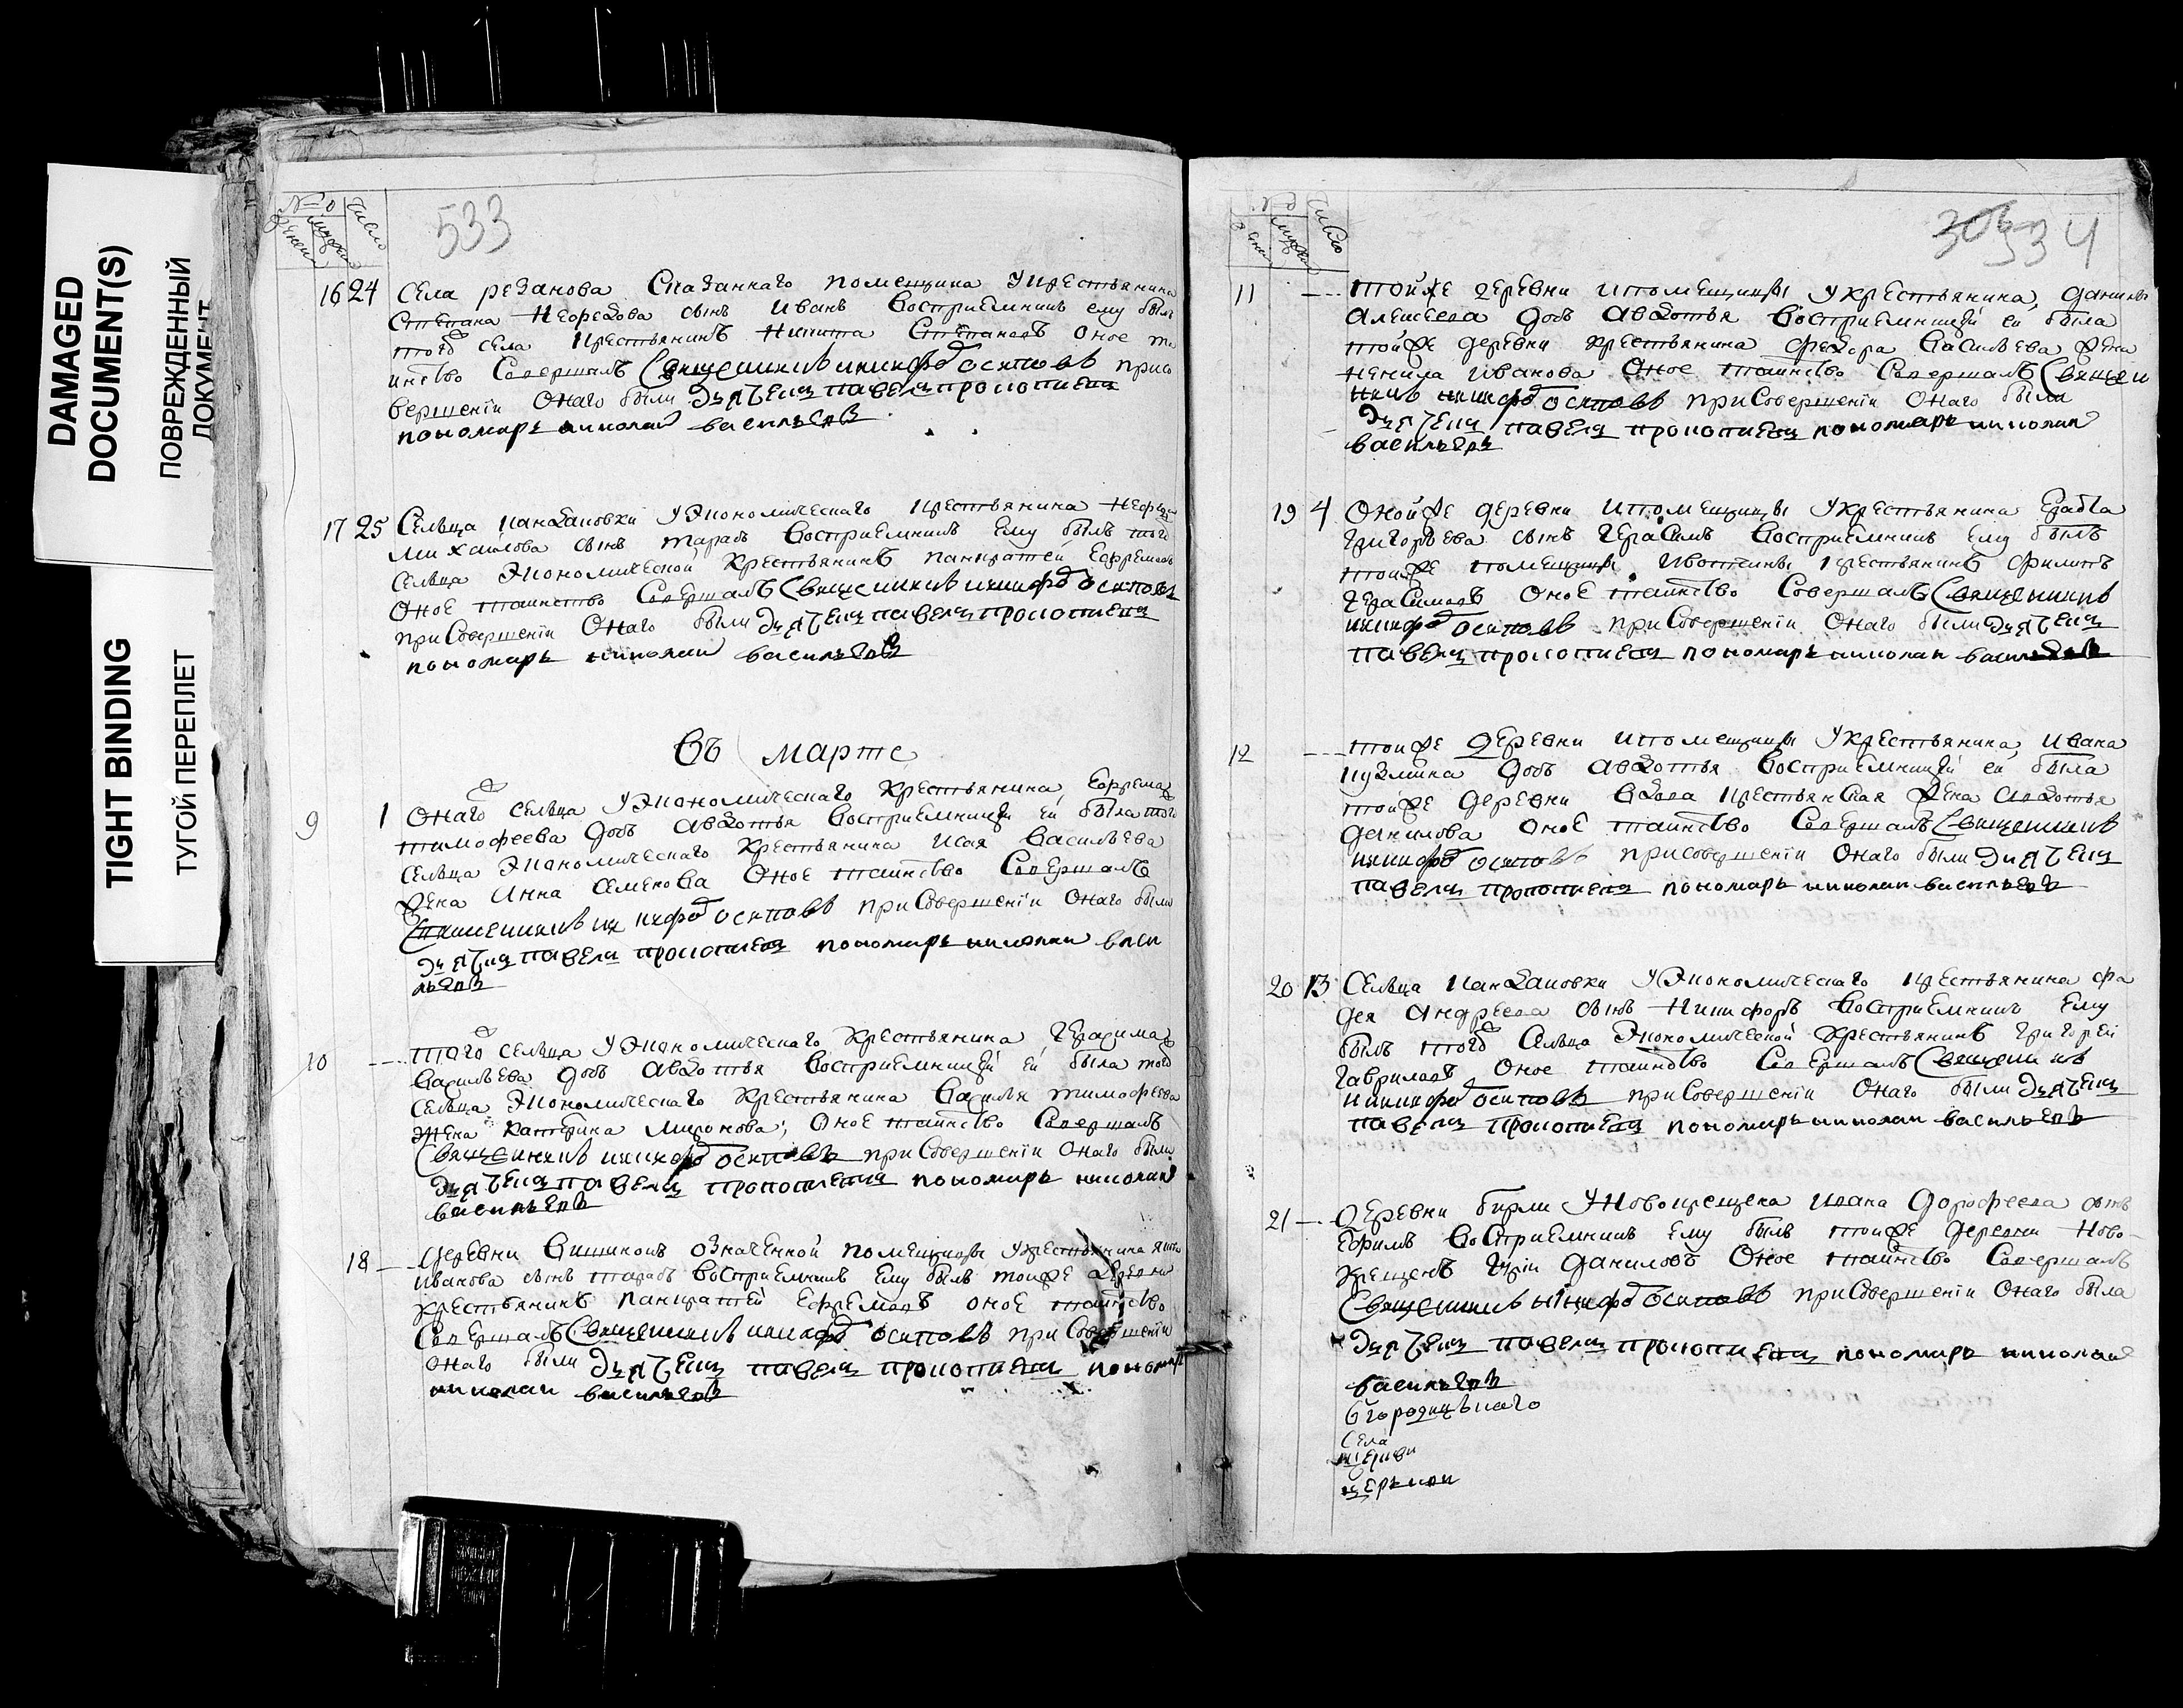 DAMAGED
DOCUMENT(S)
ПОВРЕЖДЕННЫЙ
ДОКУМЕНТ
TIGHT BINDING
ТУГОЙ ПЕРЕПЛЕТ
№
число
533
16 24 Села резанова Сказаннаго помещика У крестьянина
Степана Нефедова сынъ Иванъ Восприемникъ ему былъ
того села крестьянинъ Никита Степановъ Оное та
инство Совершалъ Священникъ никифоръ осиповъ при со
вершенiи Онаго были Дьячекъ павелъ прокопиевъ
пономарь николай васильевъ
17 25 Сельца Экономическаго крестьянина
Михайлова сынъ тарасъ Восприемникъ Ему былъ того
Сельца Экономической крестьянинъ панкратей Ефремовъ
Оное таинство Совершалъ Священникъ никифоръ осиповъ
при Совершенiи Онаго были Дьячекъ павелъ прокопиевъ
пономарь николаи васильевъ
Въ марте
9 1 Онаго Сельца У Экономическаго крестьянина Ефрема
тимофеева дочь Авдотья Восприемницей ей была того
Сельца Экономическаго крестьянина Исая Васильева
жена Анна Семенова Оное таинство Совершалъ
Священникъ никифоръ осиповъ при Совершенiи Онаго были
Дьячекъ павелъ прокопиевъ пономарь николаи васи
льевъ
10 --- того сельца У Экономическаго крестьянина Герасима
Васильева дочь Авдотья Восприемницей ей была того
Сельца Экономическаго крестьянина Василья тимофеева
жена Катерина Миронова, Оное таинство Совершалъ
Священникъ никифоръ осиповъ при Совершенiи Онаго были
Дьячекъ павелъ прокопиевъ пономарь николаи
васильевъ
18 --- Деревни означенной помещицы У крестьянина
Иванова сынъ тарасъ Восприемникъ Ему былъ тойже деревни
крестьянинъ панкратей Ефремовъ оное таинство
Совершалъ Священникъ никифоръ осиповъ при Совершенiи
онаго были Дьячекъ павелъ прокопиевъ пономарь
николаи васильевъ
№
число
534
11 --- тойже деревни и помещицы У крестьянина данилы
Алексеева дочь Авдотья Восприемницей ей была
тойже деревни крестьянина федора Васильева жена
Ненила Иванова Оное таинство Совершалъ Священ
никъ никифоръ осиповъ при Совершенiи Онаго были
Дьячекъ павелъ прокопиевъ пономарь николаи
васильевъ
19 4 Онойже деревни и помещицы У крестьянина
Григорьева сынъ Герасимъ Восприемникъ Ему былъ
тойже помещицы вотчины крестьянинъ Филипъ
Герасимовъ Оное таинство Совершалъ Священникъ
никифоръ осиповъ при Совершенiи Онаго были Дьячекъ
павелъ прокопиевъ пономарь николаи васильевъ
12 --- тойже Деревни и помещицы У крестьянина Ивана
кузмина дочь Авдотья Восприемницей ей была
тойже деревни вдова крестьянская жена Авдотья
данилова оное таинство Совершалъ Священникъ
никифоръ осиповъ при совершенiи Онаго были Дьячекъ
павелъ прокопиевъ пономарь николаи васильевъ
20 13 Сельца У Экономическаго крестьянина фа
дея Андреева сынъ Никифоръ Восприемникъ Ему
былъ того Сельца Экономической крестьянинъ Григорей
Гавриловъ Оное таинство Совершалъ Священникъ
никифоръ осиповъ при Совершенiи Онаго были Дьячекъ
павелъ прокопиевъ пономарь николаи васильевъ
21 --- Деревни бирли У Новокрещена Ивана Дорофеева сынъ
Ефимъ Восприемникъ Ему былъ тойже деревни Ново-
крещенъ Даниловъ Оное таинство Совершалъ
Священникъ никифоръ осиповъ при Совершенiи Онаго были
Дьячекъ павелъ прокопиевъ пономарь николаи
васильевъ
Села
церкви